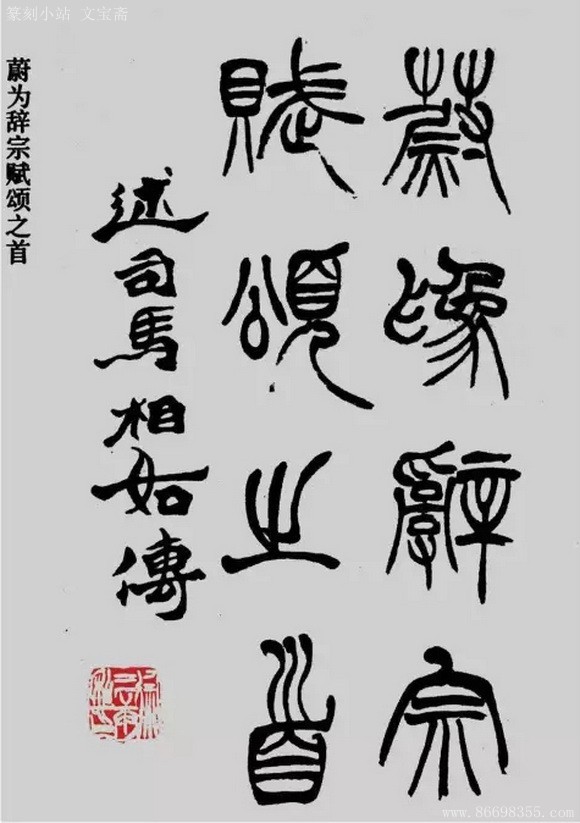 篆刻小站 文宝斋
蔚為辭宗
賦頌之首
述司馬相如傳
蔚为辞宗赋颂之首
www.86698355.com